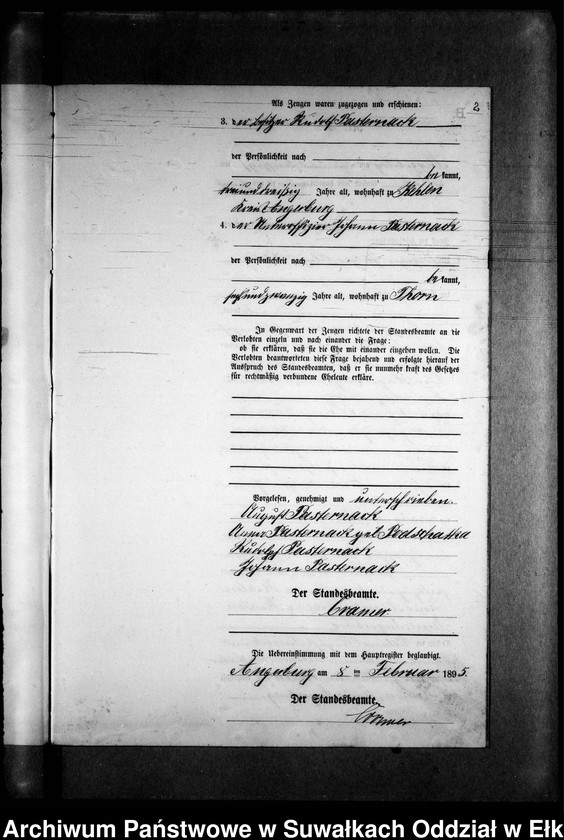 2
Als Zeugen waren zugezogen und erschienen:
3. der Besitzer Rudolf Pasternack
der Persönlichkeit nach
be kannt,
dreiunddreißig Jahre alt, wohnhaft zu Kehlen
Kreis Angerburg
4. der Unteroffizier Johann Pasternack
der Persönlichkeit nach
be kannt,
sechsundzwanzig Jahre alt, wohnhaft zu Thorn
In Gegenwart der Zeugen richtete der Standesbeamte an die
Verlobten einzeln und nach einander die Frage:
ob sie erklären, daß sie die Ehe mit einander eingehen wollen. Die
Verlobten beantworteten diese Frage bejahend und erfolgte hierauf der
Ausspruch des Standesbeamten, daß er sie nunmehr kraft des Gesetzes
für rechtmäßig verbundene Eheleute erkläre.
Vorgelesen, genehmigt und unterschrieben.
August Pasternack
Pasternack geb Podschatka
Rudolf Pasternack
Johann Pasternack
Der Standesbeamte.
Cramer
Die Uebereinstimmung mit dem Hauptregister beglaubigt.
Angerburg am 8 ten Februar 1895.
Der Standesbeamte.
Cramer
Archiwum Państwowe w Suwałkach Oddział w Ełk